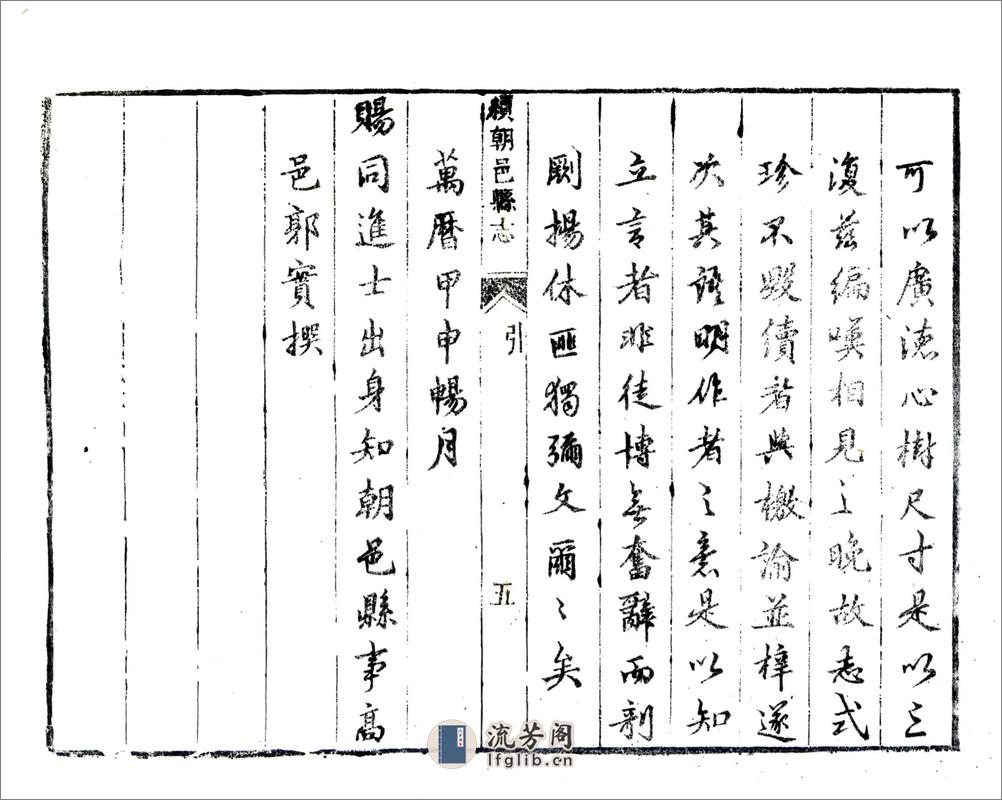 可以廣德心樹尺寸是以三
復茲編嘆相見之晚故志式
珍不毀續者與檄論並梓遂
次其語明作者之意是以知
立言者非徒博無奮辭而剞
劂揚休匪獨彌文爾〻矣
續朝邑縣志
引
五
萬曆甲申暢月
賜同進士出身知朝邑縣事高
邑郭實撰
流芳阁
lfglib.cn